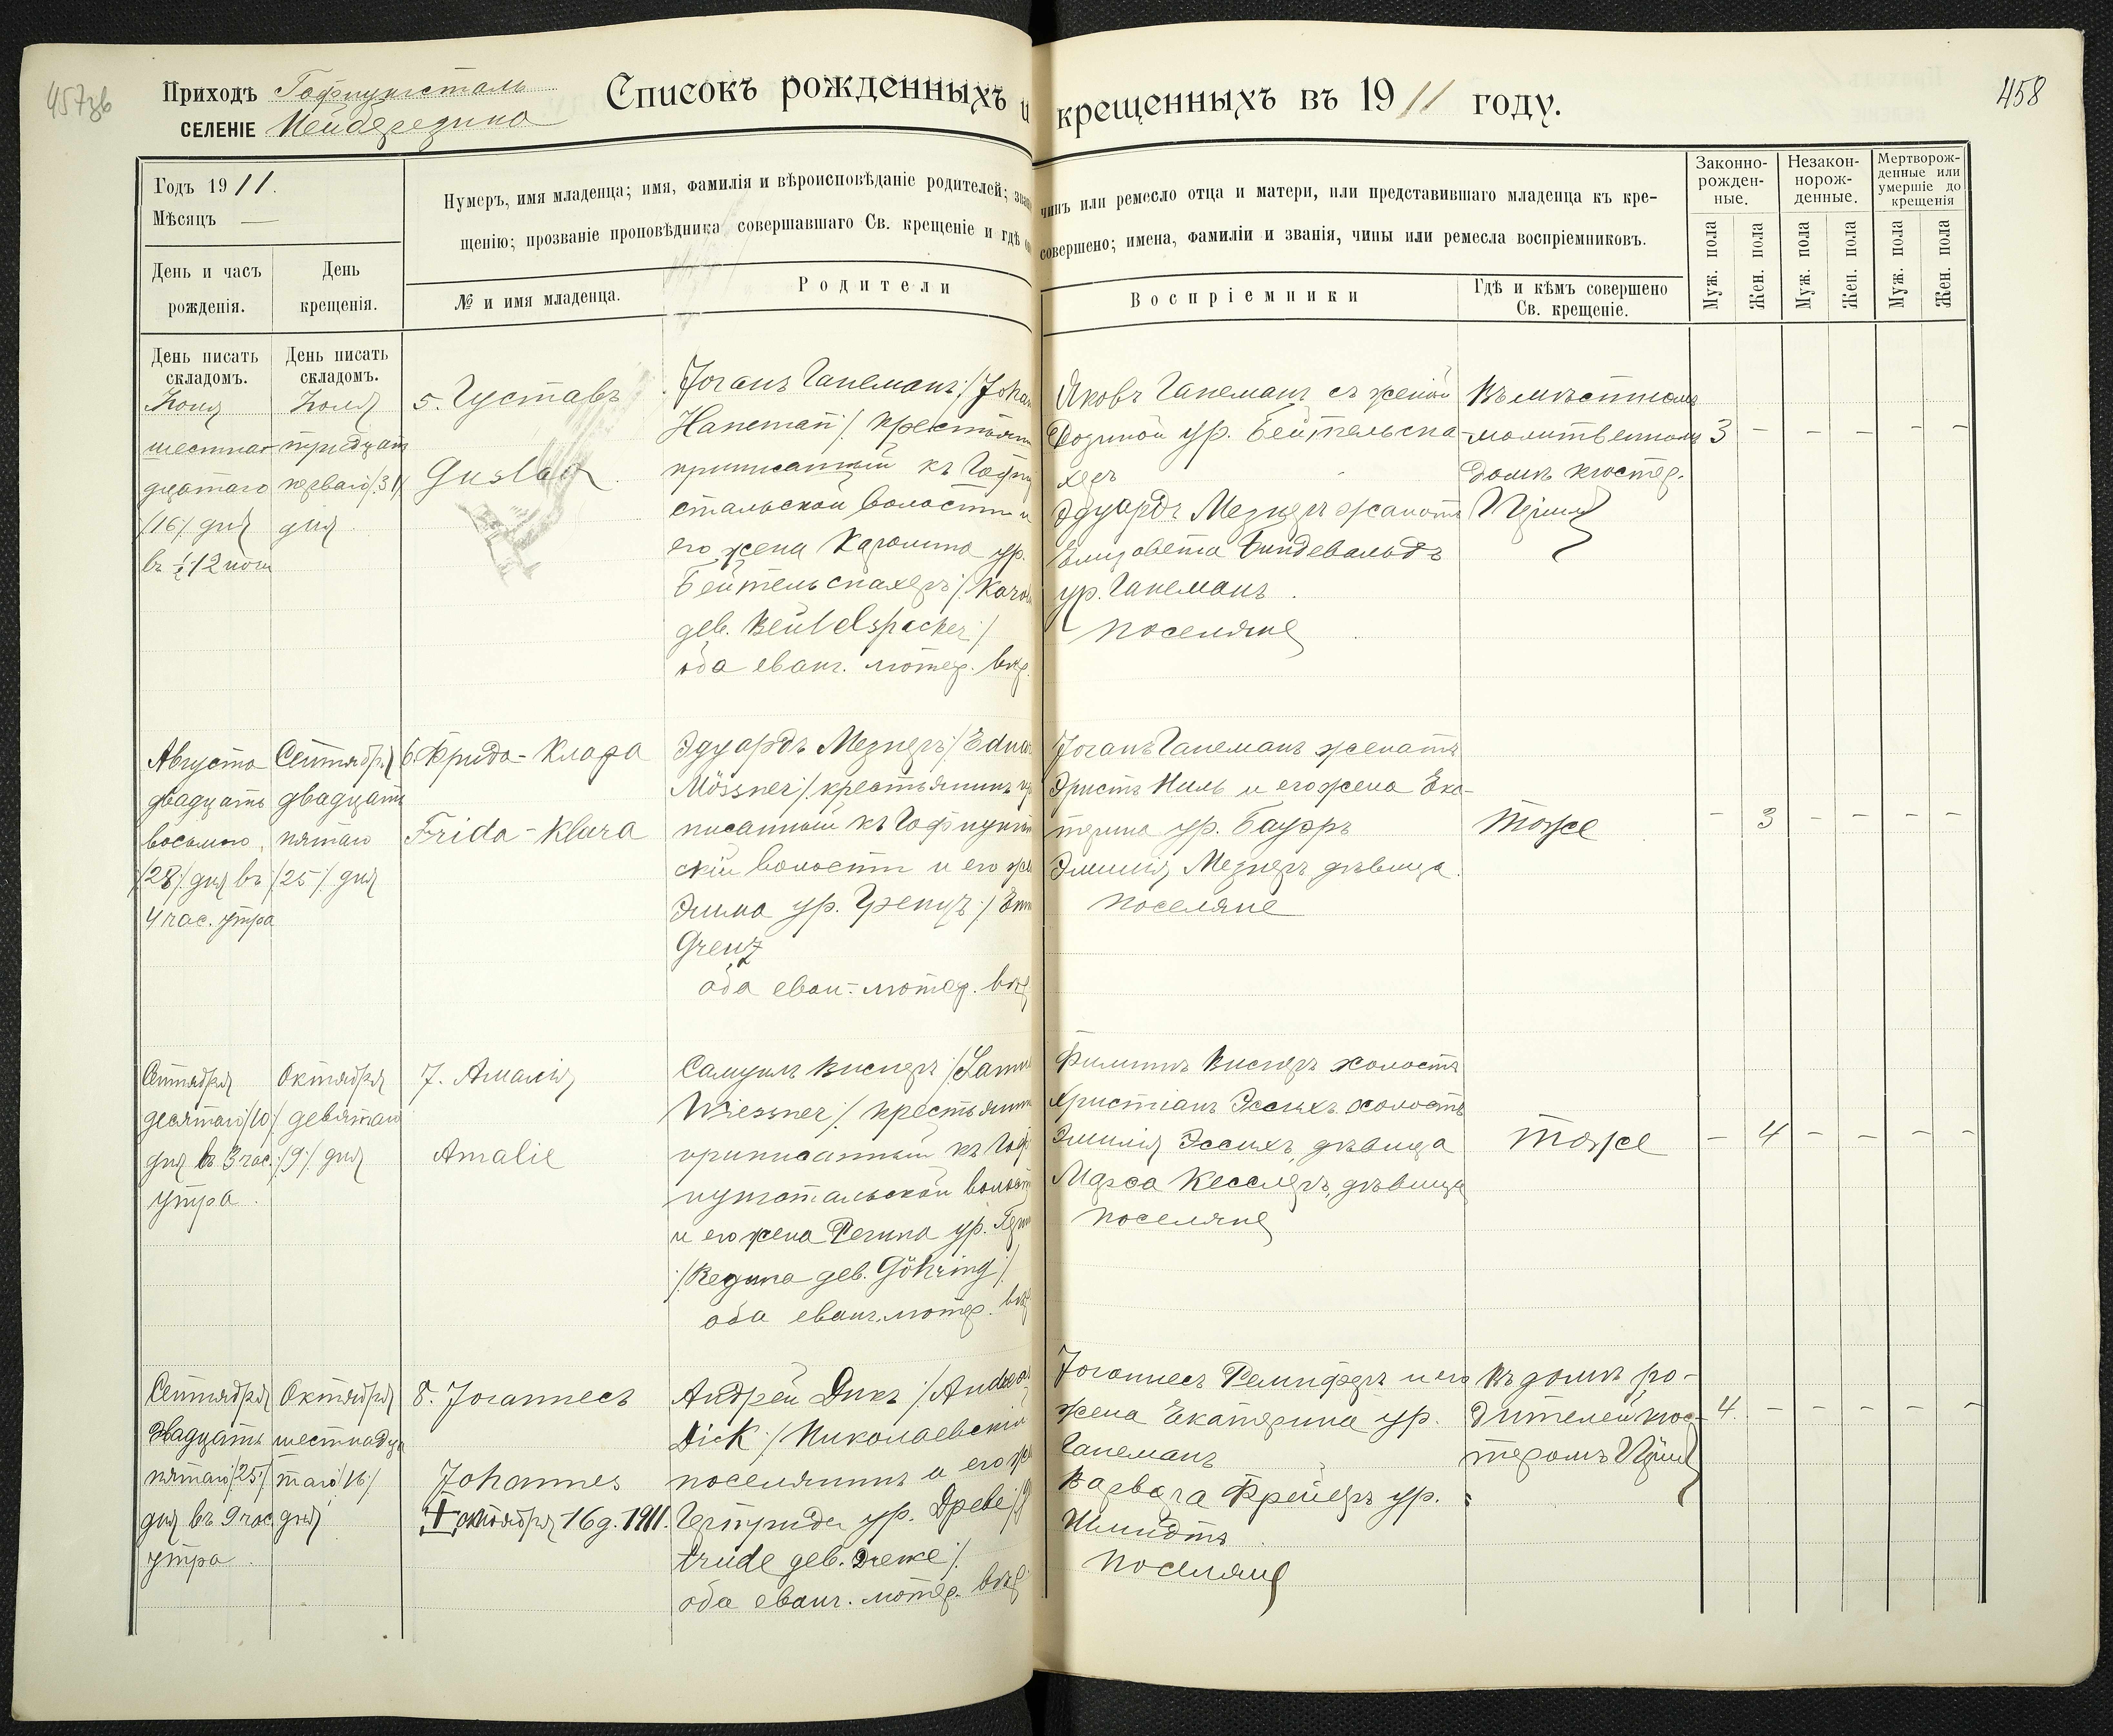 457зв
Приходъ Гофнунгсталь
СЕЛЕНІЕ Нейберезина
Списокъ рожденныхъ и крещенныхъ въ 1911 году.
458
Годъ 1911.
Мѣсяцъ —
День и часъ рожденія.
День крещенія.
Нумеръ, имя младенца; имя, фамилія и вѣроисповѣданіе родителей; чинъ или ремесло отца и матери, или представившаго младенца къ кре-
щенію; прозваніе проповѣдника совершавшаго Св. крещеніе и гдѣ совершено; имена, фамиліи и званія, чины или ремесла воспріемниковъ.
№ и имя младенца.
Родители
Воспріемники
Гдѣ и кѣмъ совершено
Св. крещеніе.
Законно-
рожден-
ные.
Незакон-
норож-
денные.
Мертворож-
денные или
умершіе до
крещенія
Муж. пола
Жен. пола
Муж. пола
Жен. пола
Муж. пола
Жен. пола
День писать
складомъ.
День писать
складомъ.
шестнад-
цатаго
/16/ дня
въ ½ 12 ночи
тридцать
перваго /31/
дня
5. Густавъ
Gustav
Іоганъ Ганеманъ /Joha
Haneman̄/ крестьян
приписанный къ Гофну
стальской волости и
его жена Каролина ур.
Бейтельспахеръ /Karo
geb. Beutelspacher/
оба еванг. лютер. вѣр.
Яковъ Ганеманъ съ женой
ур. Бейтельспа-
херъ
Эдуардъ Мезнеръ женатъ
Елизавета Биндевальдъ
ур. Ганеманъ.
поселяне
Въ мѣстномъ
молитвенномъ
домѣ кюстер.
3 — — — — —
Августа
двадцать
восьмого
/28/ дня въ
4 час. утра
Сентября
двадцать
пятаго
/25/ дня
6. Фрида-Клара
Frida-Klara
Эдуардъ Мезнеръ /Edua
Mössner/ крестьянинъ
писанный къ Гофнунгст
ской волости и его же
Эмма ур. Гренцъ /Em
Grenz
оба еван-лютер. вѣр
Іоганъ Ганеманъ женатъ
Эрнстъ Ниль и его жена Ека-
терина ур. Бауэръ
Эмилія Мезнеръ дѣвица.
поселяне
тоже
— 3 — — — —
Сентября
десятаго /10/
дня въ 3 час.
утра.
Октября
девятаго
/9/ дня
7. Амалія
Amalie
Самуилъ Виснеръ /Samu
Wiessner/ крестьянин
приписанный къ Гоф
нунгстальской волост
и его жена Регина ур. Гери
/Regina geb. Göhring/
оба еванг. лютер. вѣр
Филиппъ Виснеръ холостъ
Христіанъ Эссихъ холостъ
Эмилія Эссихъ, дѣвица
Марѳа Кесслеръ, дѣвица
поселяне
тоже
— 4 — — — —
Сентября
двадцать
пятаго /25/
дня въ 9 час
утра.
Октября
шестнадца
таго /16/
дня
8. Іоганнесъ
Johannes
† октября 16 д. 1911.
Андрей Дикъ /Andrea
Dick/ Николаевскій
поселянинъ и его же
Гертруда ур. Древе
trude geb. Drewe/
оба еванг. лютер. вѣр
Іоганнесъ Ремпферъ и его
жена Екатерина ур.
Ганеманъ
Варвара Фрейеръ ур.
Шмидтъ
поселяне
Въ домѣ ро-
дителей кюс-
теромъ
4. — — — — —